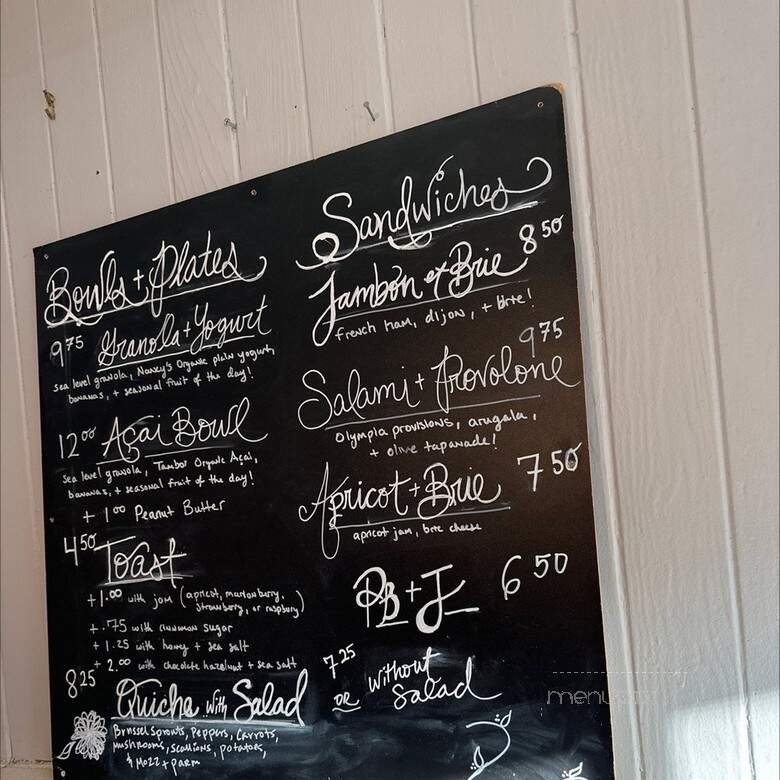 Bowls + Plates
9 75 Granola + Yogurt
sea level granola, Nancy's Organic plain yogurt,
bananas, + seasonal fruit of the day!
12 00 Açai Bowl
sea level granola, Tambor Organic Açai,
bananas, + seasonal fruit of the day!
+ 1 00 Peanut Butter
4 50 Toast
+1.00 with jam (apricot, marionberry,
strawberry, or raspbury)
+.75 with cinnamon sugar
+ 1.25 with honey + sea salt
+ 2.00 with chocolate hazelnut + sea salt
8 25 Quiche with Salad
Brussel sprouts, Peppers, Carrots,
mushrooms, scallions, potatoes,
& Mozz + parm
7 25
OR without
Salad
Sandwiches
Jambon et Brie 8 50
french ham, dijon, + brie!
9 75
Salami + Provolone
Olympia provisions, arugala,
+ olive tapanade!
Apricot + Brie 7 50
apricot jam, brie cheese
PB + J 6 50